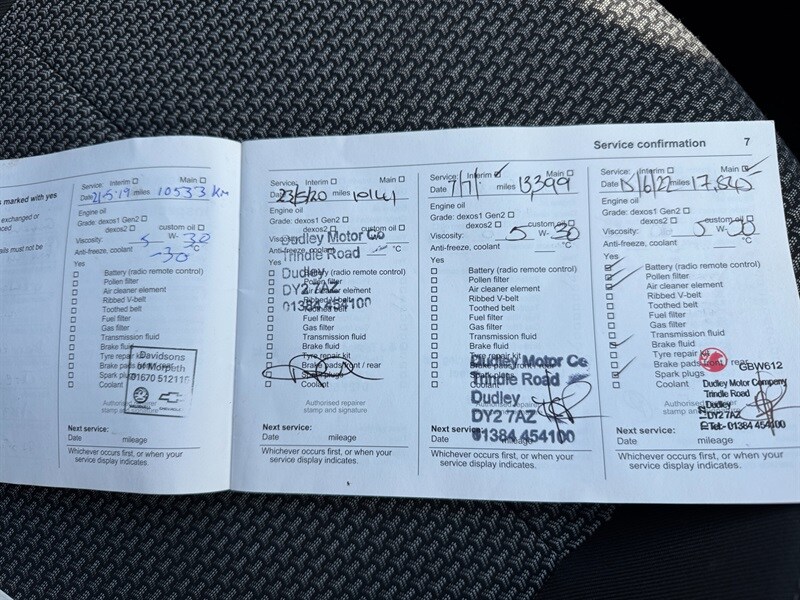 Service confirmation 7
s marked with yes
exchanged or
must not be
Service: Interim ☐ Main ☐
Date 21-5-19 miles 10533 Km
Engine oil
Grade: dexos1 Gen2 ☐
dexos2 ☐ custom oil ☐
Viscosity: 5 W- 30
Anti-freeze, coolant -30 °C
Yes
☐ Battery (radio remote control)
☐ Pollen filter
☐ Air cleaner element
☐ Ribbed V-belt
☐ Toothed belt
☐ Fuel filter
☐ Gas filter
☐ Transmission fluid
☐ Brake fluid
☐ Tyre repair kit
☐ Brake pads front / rear
☐ Spark plugs
☐ Coolant
Davidsons
of Morpeth
VAUXHALL CHEVROLET
Authorised repairer
stamp and signature
Next service:
Date mileage
Whichever occurs first, or when your
service display indicates.
Service: Interim ☐ Main ☐
Date 23/5/20 miles 10141
Engine oil
Grade: dexos1 Gen2 ☐
dexos2 ☐ custom oil ☐
Viscosity: W-
Anti-freeze, coolant °C
Yes
☐ Battery (radio remote control)
☐ Pollen filter
☐ Air cleaner element
☐ Ribbed V-belt
☐ Toothed belt
☐ Fuel filter
☐ Gas filter
☐ Transmission fluid
☐ Brake fluid
☐ Tyre repair kit
☐ Brake pads front / rear
☐ Spark plugs
☐ Coolant
Dudley Motor Co
Trindle Road
Dudley
DY2 7AZ
01384 454100
Authorised repairer
stamp and signature
Next service:
Date mileage
Whichever occurs first, or when your
service display indicates.
Service: Interim ☑ Main ☐
Date 7/7/ miles 13399
Engine oil
Grade: dexos1 Gen2 ☐
dexos2 ☐ custom oil ☐
Viscosity: 5 W- 30
Anti-freeze, coolant °C
Yes
☐ Battery (radio remote control)
☐ Pollen filter
☐ Air cleaner element
☐ Ribbed V-belt
☐ Toothed belt
☐ Fuel filter
☐ Gas filter
☐ Transmission fluid
☐ Brake fluid
☐ Tyre repair kit
☐ Brake pads front / rear
☐ Spark plugs
☐ Coolant
Dudley Motor Co
Trindle Road
Dudley
DY2 7AZ
01384 454100
Authorised repairer
Next service:
Date mileage
Whichever occurs first, or when your
service display indicates.
Service: Interim ☐ Main ☑
Date 15/6/22 miles 17,840
Engine oil
Grade: dexos1 Gen2 ☐
dexos2 ☐ custom oil ☐
Viscosity: 5 W- 30
Anti-freeze, coolant °C
Yes
☑ Battery (radio remote control)
☑ Pollen filter
☑ Air cleaner element
☐ Ribbed V-belt
☐ Toothed belt
☐ Fuel filter
☐ Gas filter
☐ Transmission fluid
☑ Brake fluid
☐ Tyre repair kit
☐ Brake pads front / rear
☑ Spark plugs
☐ Coolant
GBW612
Dudley Motor Company
Trindle Road
Dudley
DY2 7AZ
Tel:- 01384 454100
Authorised repairer
stamp and
Next service:
Date mileage
Whichever occurs first, or when your
service display indicates.